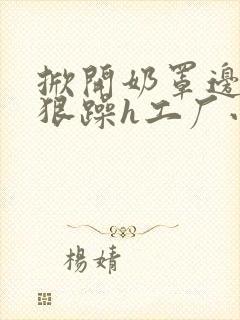 掀開奶罩邊
狠躁h工厂
楊婧